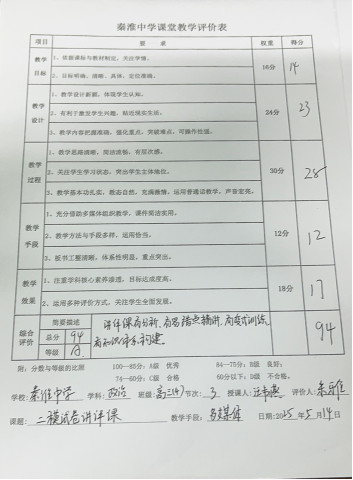 秦淮中学课堂教学评价表
项目 要 求 权重 得分
教学目标 1、依据课标与教材制定，关注学情。 16分 14
2、目标明确、清晰、具体，定位准确。
教学设计 1、教学设计新颖，体现学生认知。 24分 23
2、有利于激发学生兴趣，贴近现实生活。
3、教学内容把握准确，强化重点，突破难点，可操作性强。
教学过程 1、教学思路清晰，简洁流畅，有层次感。 30分 28
2、关注学生学习状态，突出学生主体地位。
3、教学基本功扎实，教态自然，充满激情，运用普通话教学，声音宏亮。
教学手段 1、充分借助多媒体组织教学，课件简洁实用。 12分 12
2、教学方法与手段多样，运用恰当。
3、板书工整清晰，体系性明显，重点突出。
教学效果 1、注重学科核心素养渗透，目标达成度高。 18分 17
2、运用多种评价方式，关注学生全面发展。
综合评价 简要描述 讲评课有分析，有易错点精讲，有变式训练， 94
总分 94 有知识体系构建
等级 A
附：分数与等级的比照 100—85分：A级 优秀 84—75分：B级 良好；
74—60分：C级 合格 60分以下：D级 不合格。
学校：秦淮中学 学科：政治 班级：高三(4) 节次：3 授课人： 评价人：
课题：二模试卷讲评课 教学手段：多媒体 日期：2025年5月14日